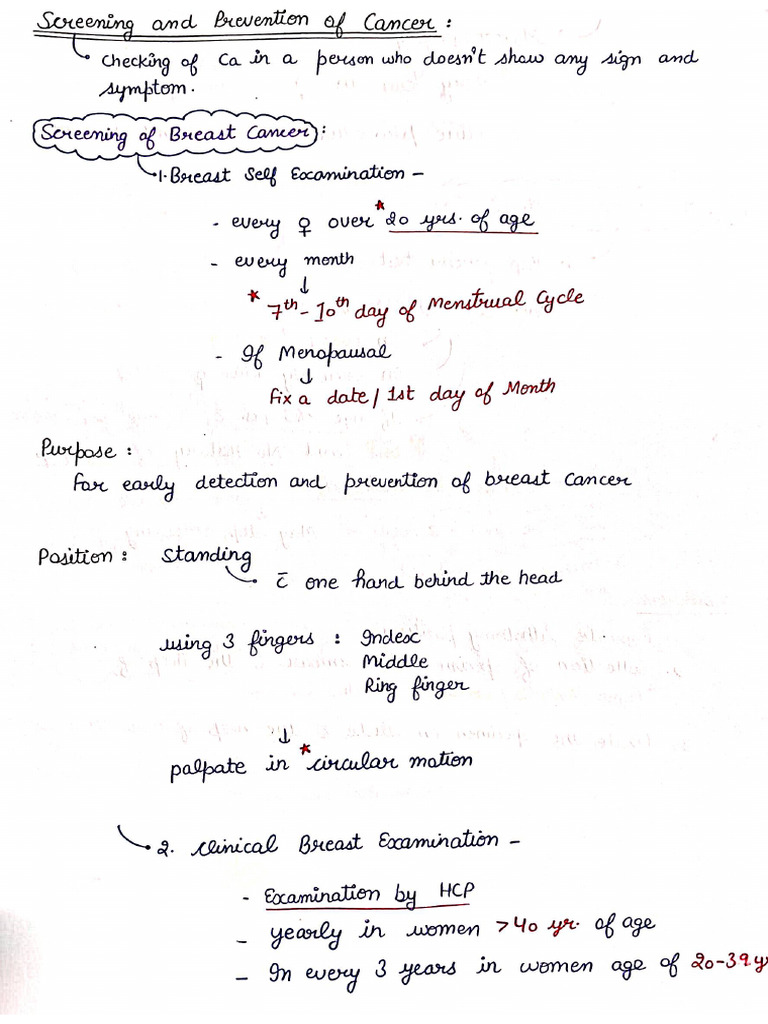 Screening and Prevention of Cancer :
Checking of Ca in a person who doesn't show any sign and
symptom.
Screening of Breast Cancer :
1. Breast Self Examination -
- every ♀ over *20 yrs. of age
- every month
↓
* 7th - 10th day of Menstrual Cycle
- If Menopausal
↓
fix a date / 1st day of Month
Purpose :
For early detection and prevention of breast cancer
Position : Standing
c̄ one hand behind the head
using 3 fingers : Index
Middle
Ring finger
↓
palpate in *circular motion
2. Clinical Breast Examination -
- Examination by HCP
- yearly in women >40 yr. of age
- In every 3 years in women age of 20-39 y